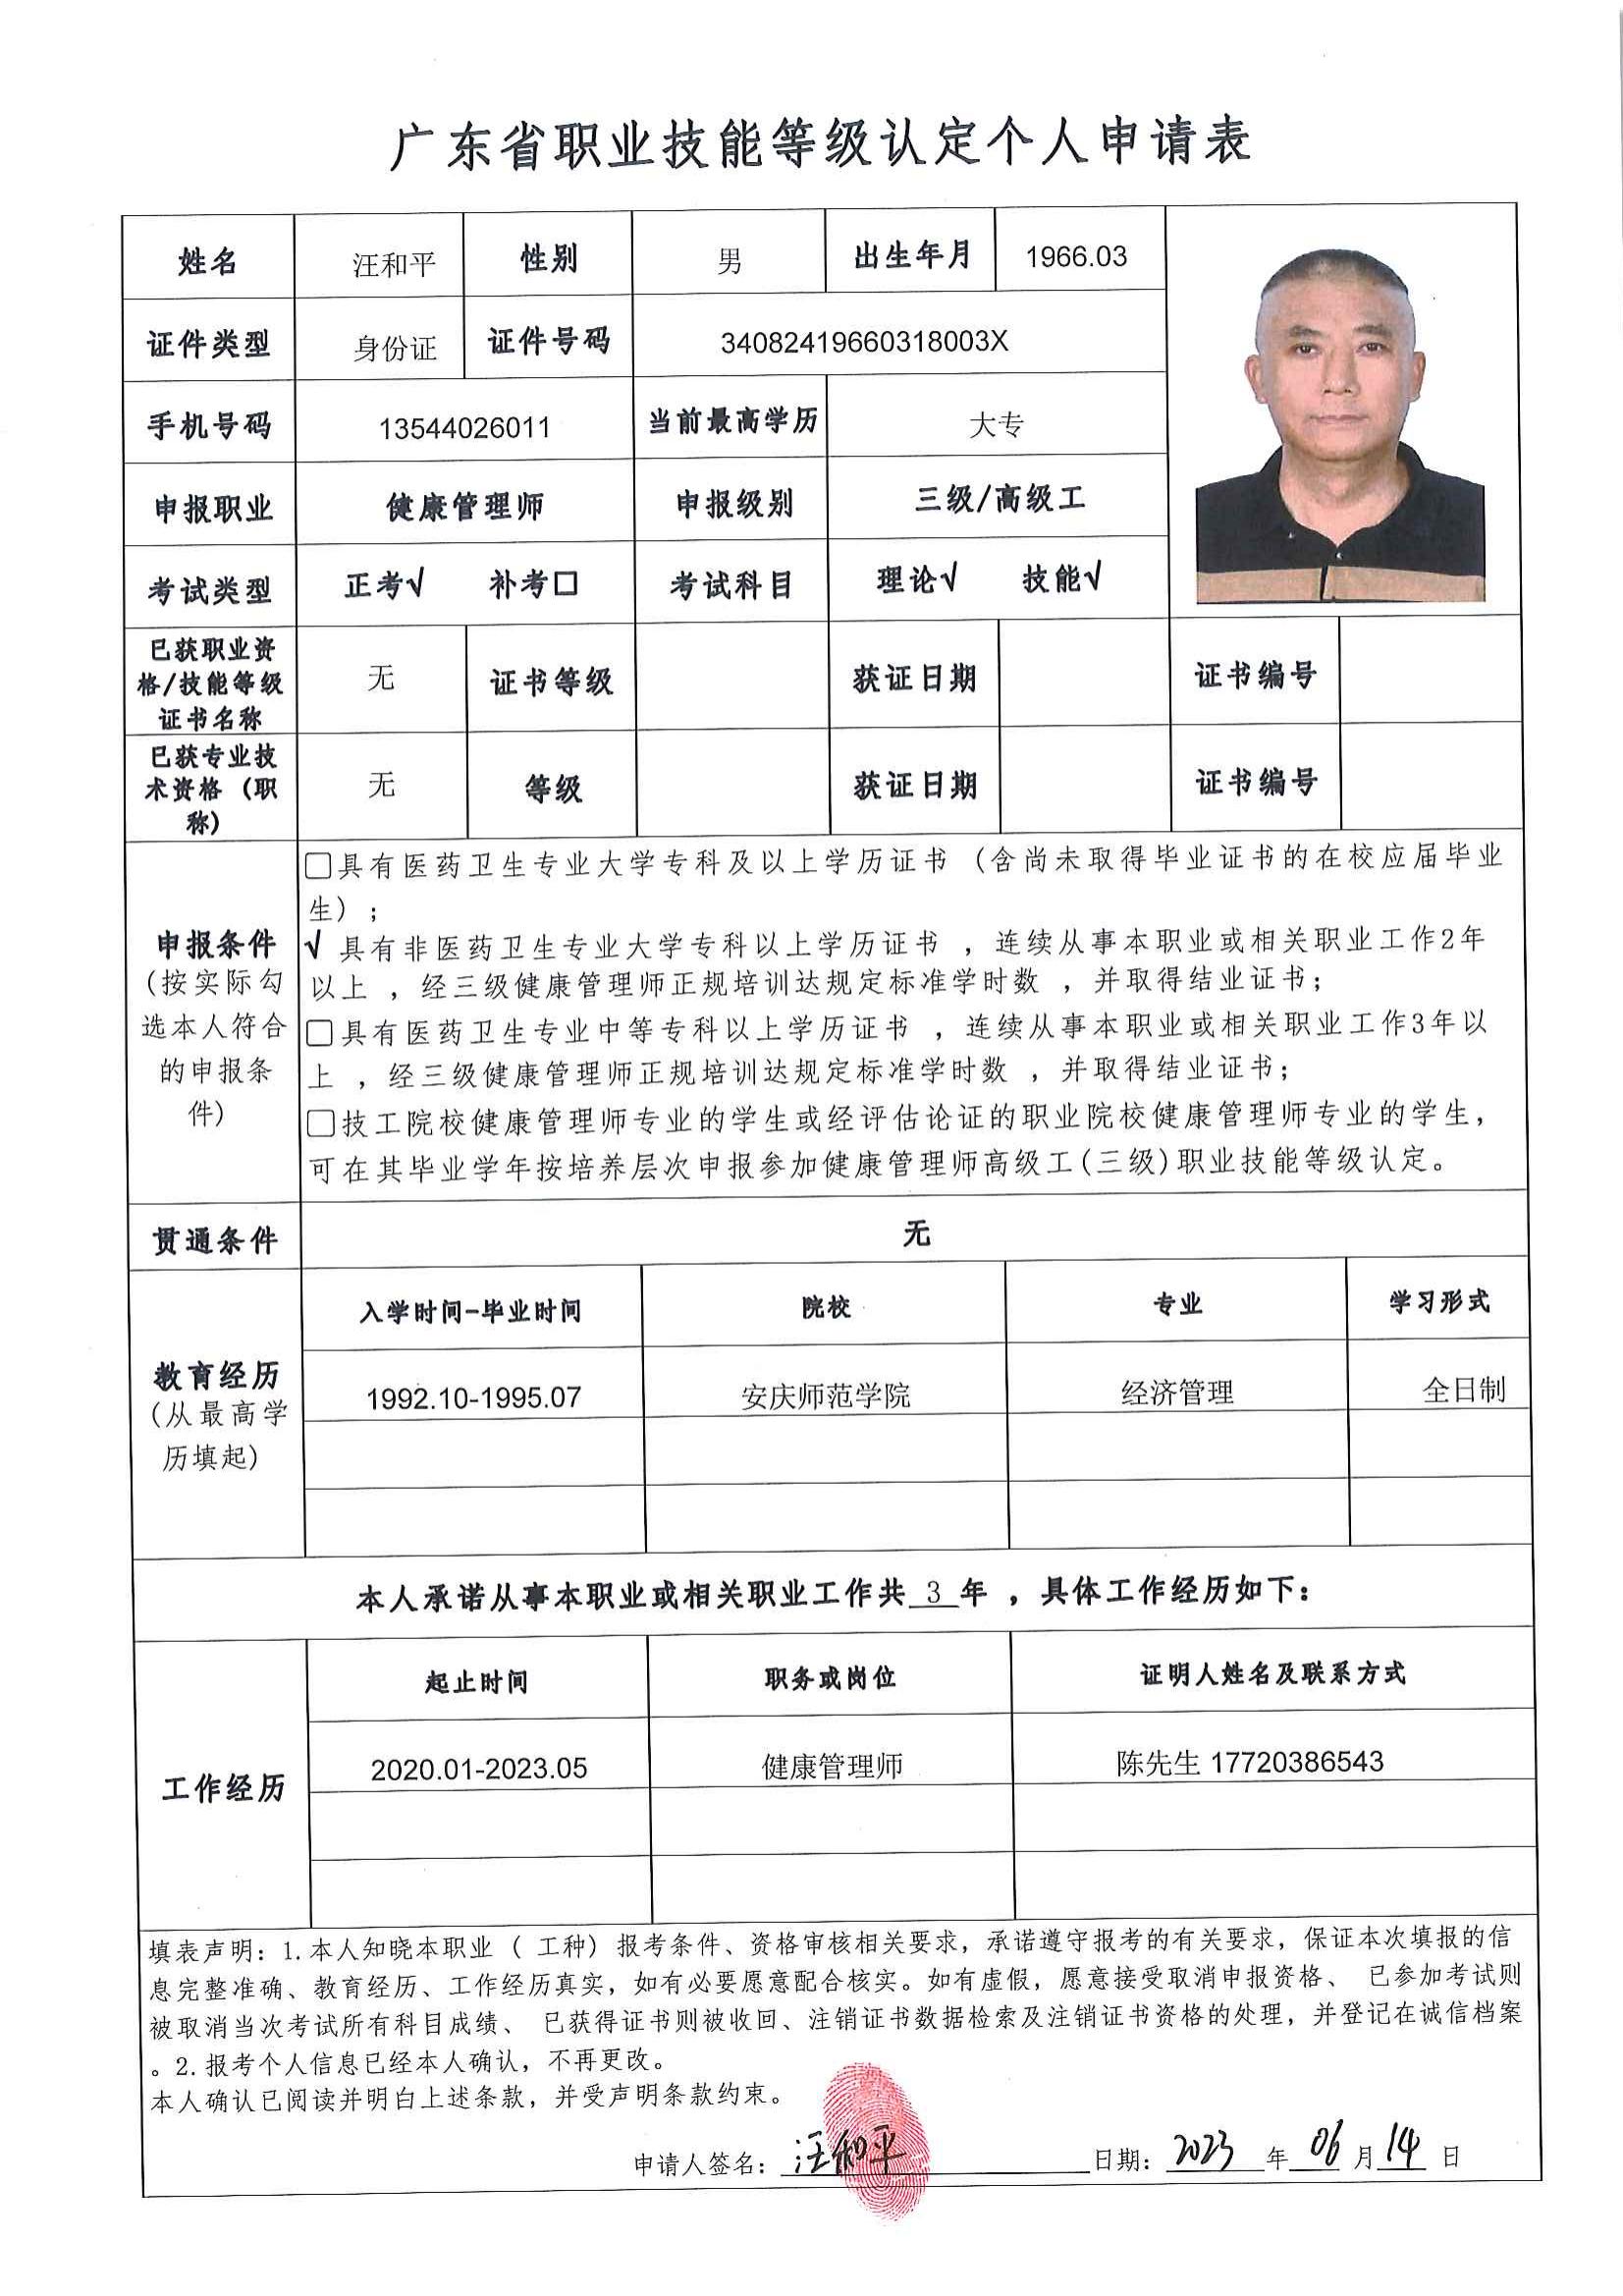 广东省职业技能等级认定个人申请表
姓名 汪和平 性别 男 出生年月 1966.03
证件类型 身份证 证件号码 34082419660318003X
手机号码 13544026011 当前最高学历 大专
申报职业 健康管理师 申报级别 三级/高级工
考试类型 正考√ 补考□ 考试科目 理论√ 技能√
已获职业资
格/技能等级 无 证书等级 获证日期 证书编号
证书名称
已获专业技
术资格（职 无 等级 获证日期 证书编号
称）
申报条件
(按实际勾
选本人符合
的申报条
件)
□具有医药卫生专业大学专科及以上学历证书（含尚未取得毕业证书的在校应届毕业
生）；
√ 具有非医药卫生专业大学专科以上学历证书，连续从事本职业或相关职业工作2年
以上，经三级健康管理师正规培训达规定标准学时数，并取得结业证书；
□具有医药卫生专业中等专科以上学历证书，连续从事本职业或相关职业工作3年以
上，经三级健康管理师正规培训达规定标准学时数，并取得结业证书；
□技工院校健康管理师专业的学生或经评估论证的职业院校健康管理师专业的学生，
可在其毕业学年按培养层次申报参加健康管理师高级工(三级)职业技能等级认定。
贯通条件 无
教育经历
(从最高学
历填起)
入学时间-毕业时间 院校 专业 学习形式
1992.10-1995.07 安庆师范学院 经济管理 全日制
本人承诺从事本职业或相关职业工作共 3 年，具体工作经历如下：
工作经历
起止时间 职务或岗位 证明人姓名及联系方式
2020.01-2023.05 健康管理师 陈先生 17720386543
填表声明：1.本人知晓本职业（ 工种）报考条件、资格审核相关要求，承诺遵守报考的有关要求，保证本次填报的信
息完整准确、教育经历、工作经历真实，如有必要愿意配合核实。如有虚假，愿意接受取消申报资格、 已参加考试则
被取消当次考试所有科目成绩、 已获得证书则被收回、注销证书数据检索及注销证书资格的处理，并登记在诚信档案
。2.报考个人信息已经本人确认，不再更改。
本人确认已阅读并明白上述条款，并受声明条款约束。
申请人签名：汪和平 日期：2023 年 06 月 14 日